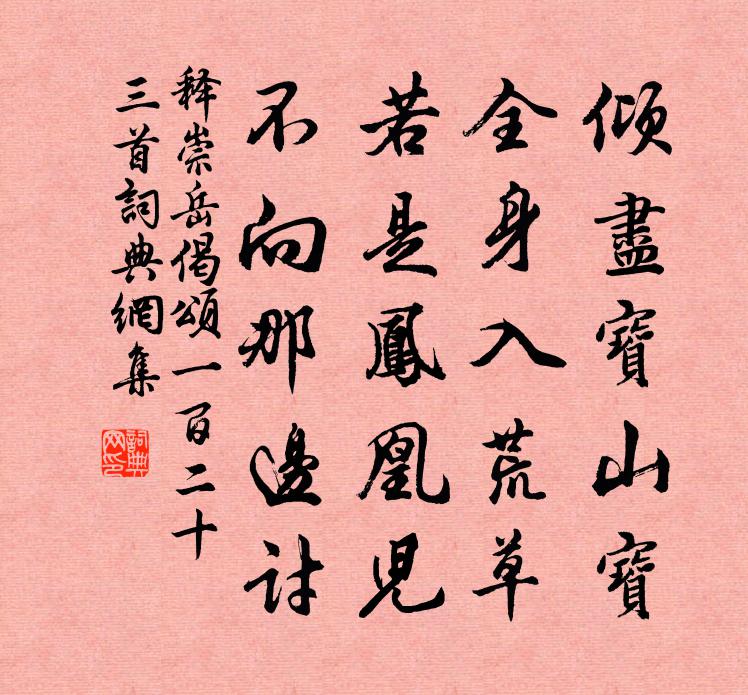 傾盡寶山寶
全身入荒草
若是鳳凰兒
不向那邊討
释崇岳偈頌一百二十
三首詞典網集
詞典網印